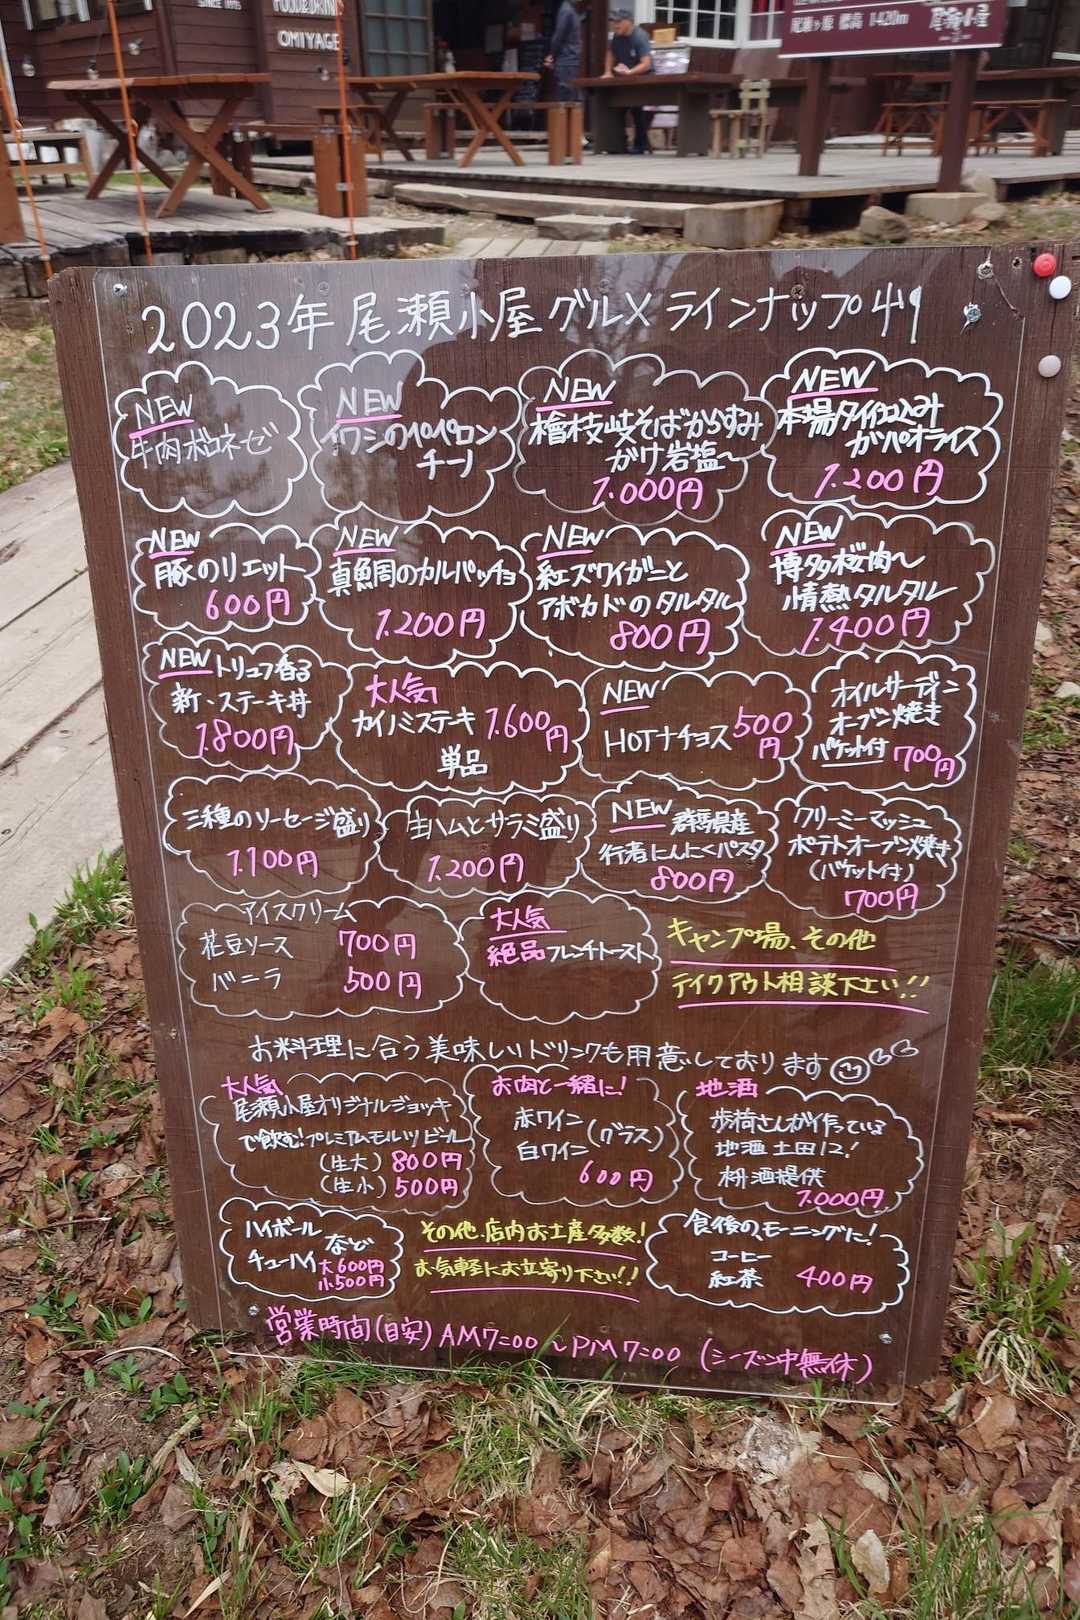 SINCE 1995
FOOD&DRINK
OMIYAGE
尾瀬ヶ原 標高 1420m
尾瀬小屋
2023年 尾瀬小屋 グルメ ラインナップ
NEW
牛肉ボロネーゼ
NEW
イワシのペペロン
チーノ
NEW
檜枝岐そばからすみ
がけ岩塩〜
1.000円
NEW
本場タイ仕込み
ガパオライス
1.200円
NEW
豚のリエット
600円
NEW
真鯛のカルパッチョ
1.200円
NEW
紅ズワイガニと
アボカドのタルタル
800円
NEW
博多桜肉〜
情熱タルタル
1.400円
NEW トリュフ香る
新、ステーキ丼
1.800円
大人気
カイノミステーキ 1.600円
単品
NEW
HOTナチョス 500円
オイルサーディン
オーブン焼き
バケット付 700円
三種のソーセージ盛り
1.100円
生ハムとサラミ盛り
1.200円
NEW 群馬県産
行者にんにくパスタ
800円
クリーミーマッシュ
ポテトオーブン焼き
(バケット付)
700円
アイスクリーム
花豆ソース 700円
バニラ 500円
大人気
絶品フレンチトースト
キャンプ場、その他
テイクアウト相談下さい!!
お料理に合う美味しいドリンクも用意しております
大人気
尾瀬小屋オリジナルジョッキ
で飲む!プレミアムモルツビール
(生大) 800円
(生小) 500円
お肉と一緒に!
赤ワイン
白ワイン (グラス)
600円
地酒
歩荷さんが作っている
地酒 土田12!
枡酒提供
1.000円
ハイボール
チューハイ など
大600円
小500円
その他、店内お土産多数!
お気軽にお立寄り下さい!!
食後の、モーニングに!
コーヒー
紅茶 400円
営業時間(目安) AM7:00〜PM7:00 (シーズン中無休)